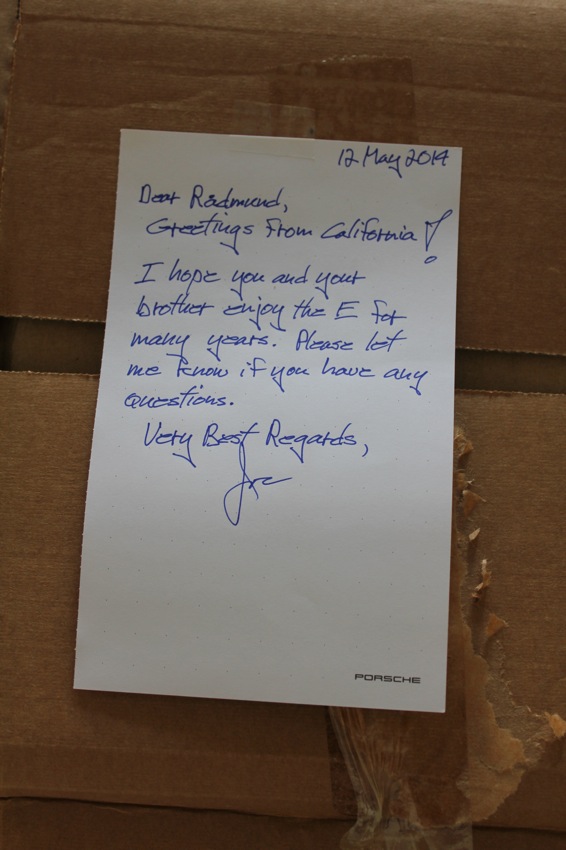 12 May 2014
Dear Radmund,
Greetings From California!
I hope you and your
brother enjoy the E for
many years. Please let
me know if you have any
questions.
Very Best Regards,
PORSCHE